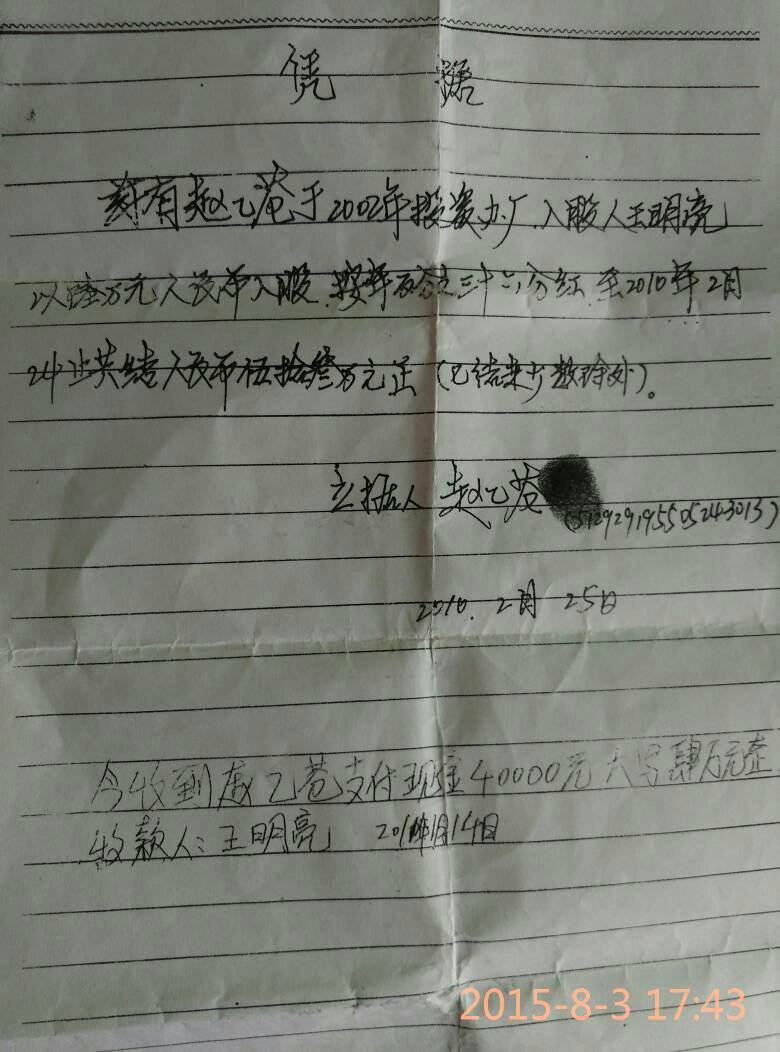 凭 据
兹有赵乙苍于2002年投资办厂.入股人王明亮
以 万元人民币入股.按年百分之三十六分红.至2010年2月
24止共结人民币伍拾叁万元正(已结来少数除外)。
立据人 赵乙苍 (512929195505243013)
2010.2月 25日
今收到 乙苍支付现金40000元 大写肆万元整
收款人:王明亮 201 年1月14日
2015-8-3 17:43